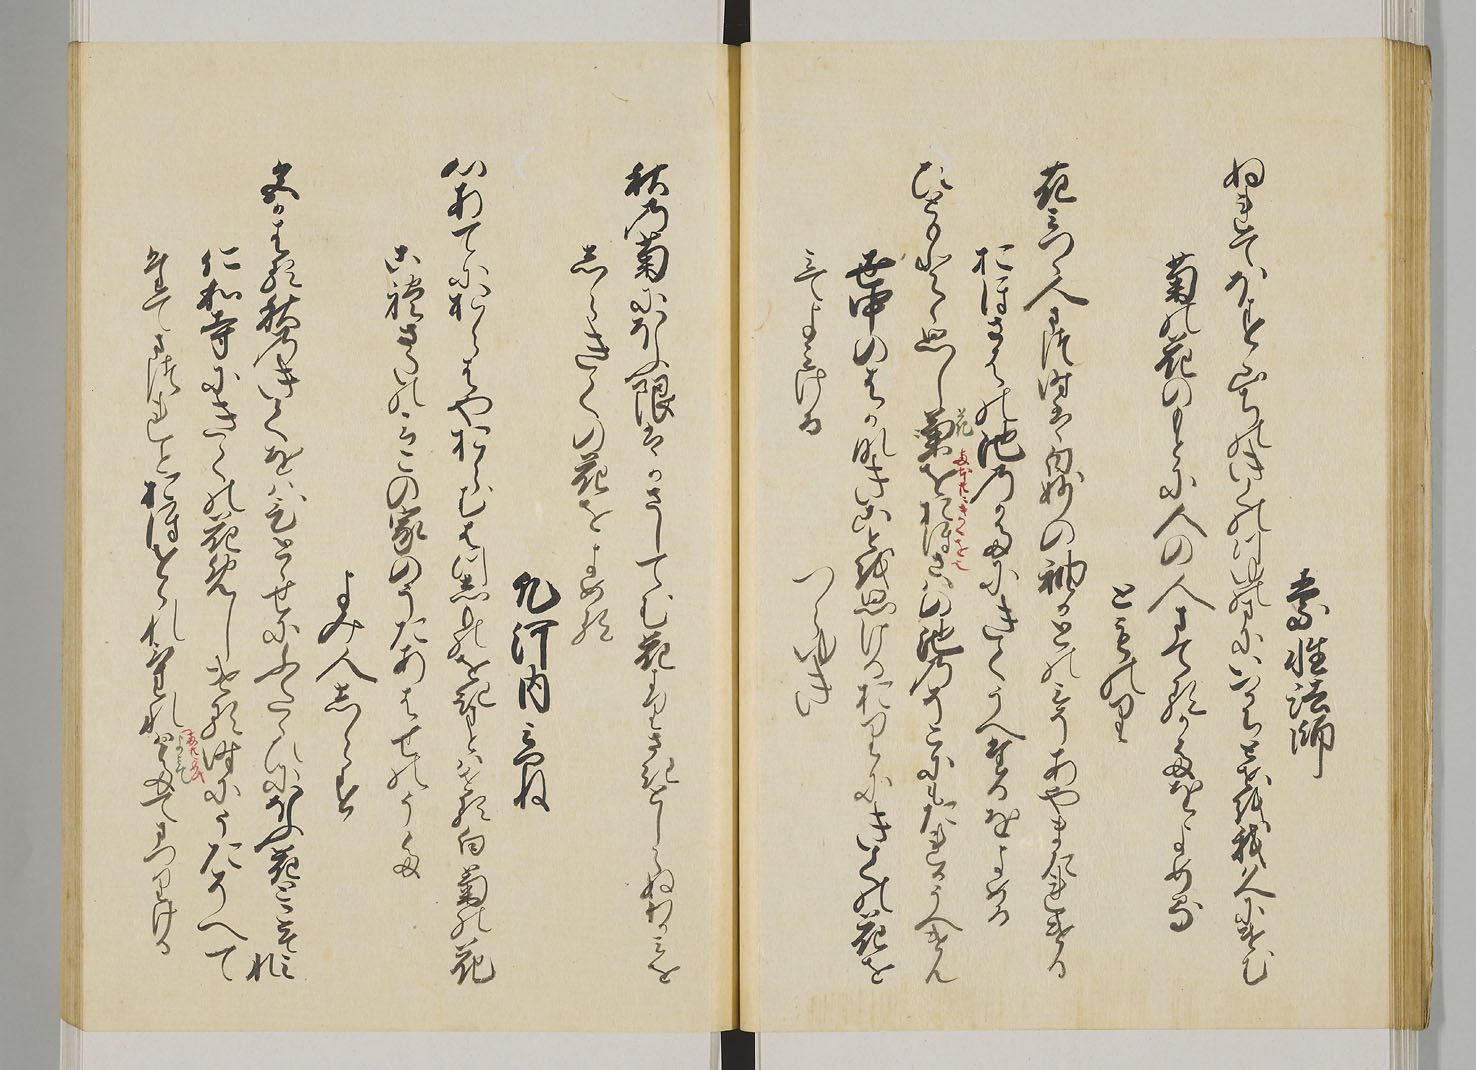 素性法師
ぬれてほす山ちのきくのつゆのまにいつかちとせを我はへにけむ
菊の花のもとに人の人まてるかたをよめる
とものり
花みつゝ人まつ時は白妙の袖かとのみそあやまたれける
おほさはの池のかたにきくうへたるをよめる
花
ひともとゝ思し菊をおほさはの池のそこにもたれかうへけん
世中のはかなきことを思けるおりにきくの花を
みてよみける　つらゆき
秋の菊にほふ限はかさしてむ花よりさきとしらぬわかみを
しらきくの花をよめる
凡河内みつね
心あてにおらはやおらむはつ霜のをきまとはせる白菊の花
これさたのみこの家のうたあはせのうた
よみ人しらす
色かはる秋のきくをはひとゝせにふたゝひにほふ花とこそみれ
仁和寺にきくの花めしける時にうたそへて
たてまつれとおほせられけれはよみてたてまつりける